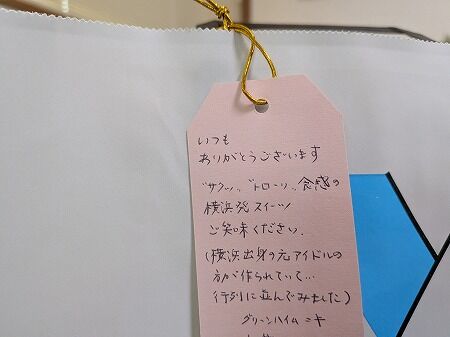 いつも
ありがとうございます
"サクッ"、"トローリ"、食感の
横浜発スイーツ
ご笑味ください。
(横浜出身の元アイドルの
方が作られていて…
行列に並んでみました)
グリーンハイムニキ